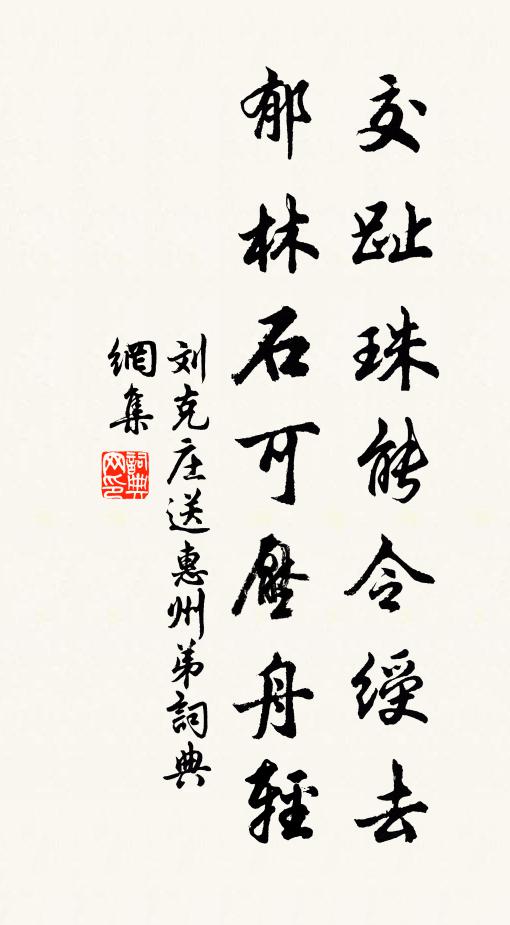 交趾珠能令綬去
郁林石可壓舟輕
刘克庄送惠州弟詞典
網集
詞典網印